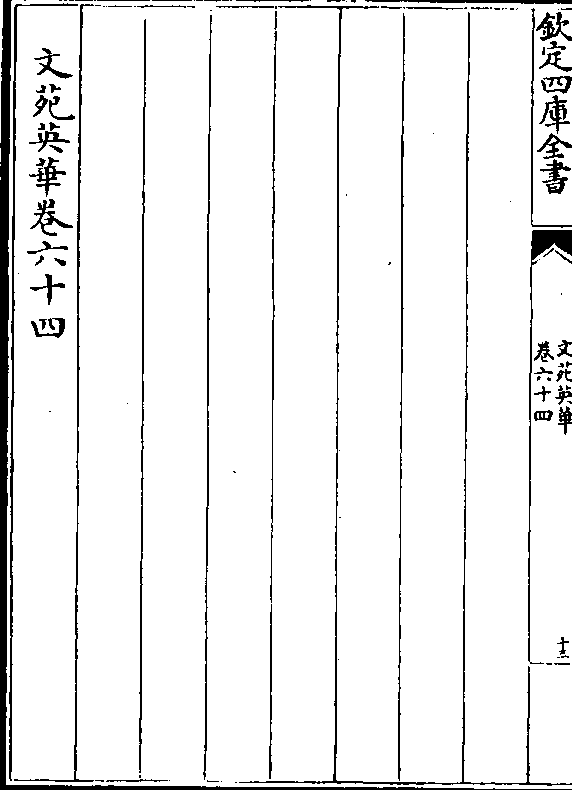 欽定四庫全書
文苑英華
卷六十四
十三
文苑英華卷六十四